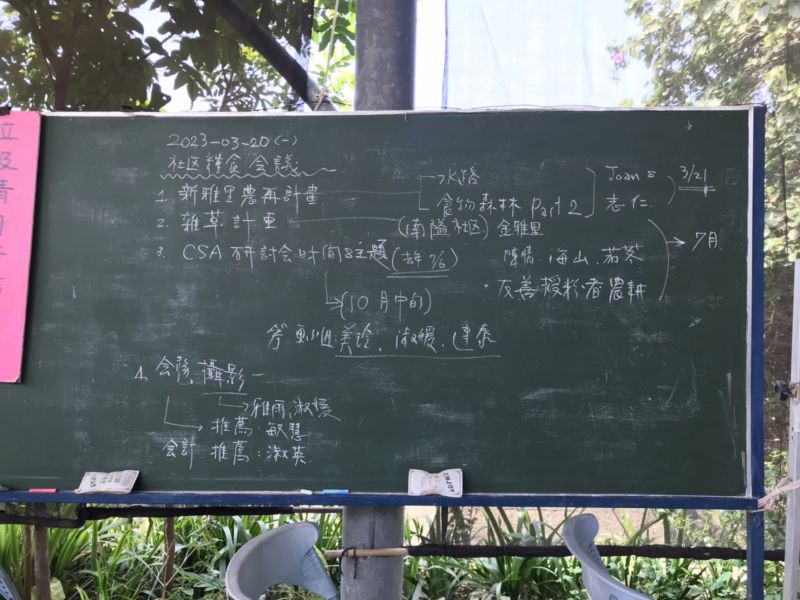 2023-03-20(一)
社区糧食会議
1. 新雅里農再計畫
水路
食物森林 Part 2
Joan &
志仁
3/21
2. 雜草計画
(南隘社区) 金雅里
3. CSA 研討会時间&主題 (去年7/6)
陳情: 海山、茄苳
・友善授粉者農耕
→ 7月
→(10月中旬)
美玲、淑媛、
4. 会務、攝影
→雅雨、淑媛
→ 推薦 敏慧
会計 推薦:淑英